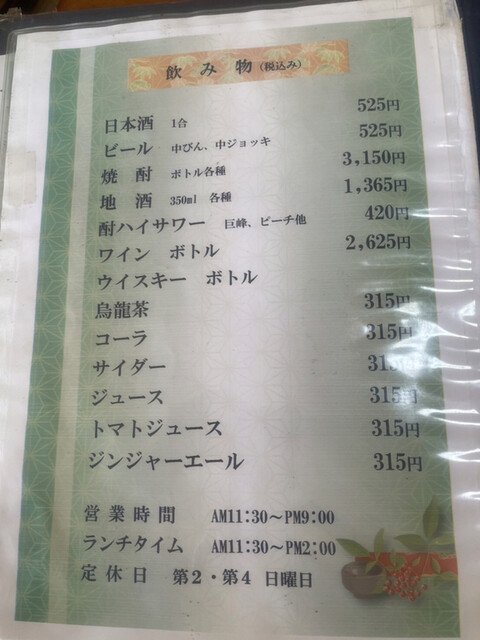 飲み物（税込み）
日本酒 1合 525円
ビール 中びん、中ジョッキ 525円
焼酎 ボトル各種 3,150円
地酒 350ml 各種 1,365円
酎ハイサワー 巨峰、ピーチ他 420円
ワイン ボトル 2,625円
ウイスキー ボトル
烏龍茶 315円
コーラ 315円
サイダー 315円
ジュース 315円
トマトジュース 315円
ジンジャーエール 315円
営業時間 AM11:30～PM9:00
ランチタイム AM11:30～PM2:00
定休日 第2・第4 日曜日